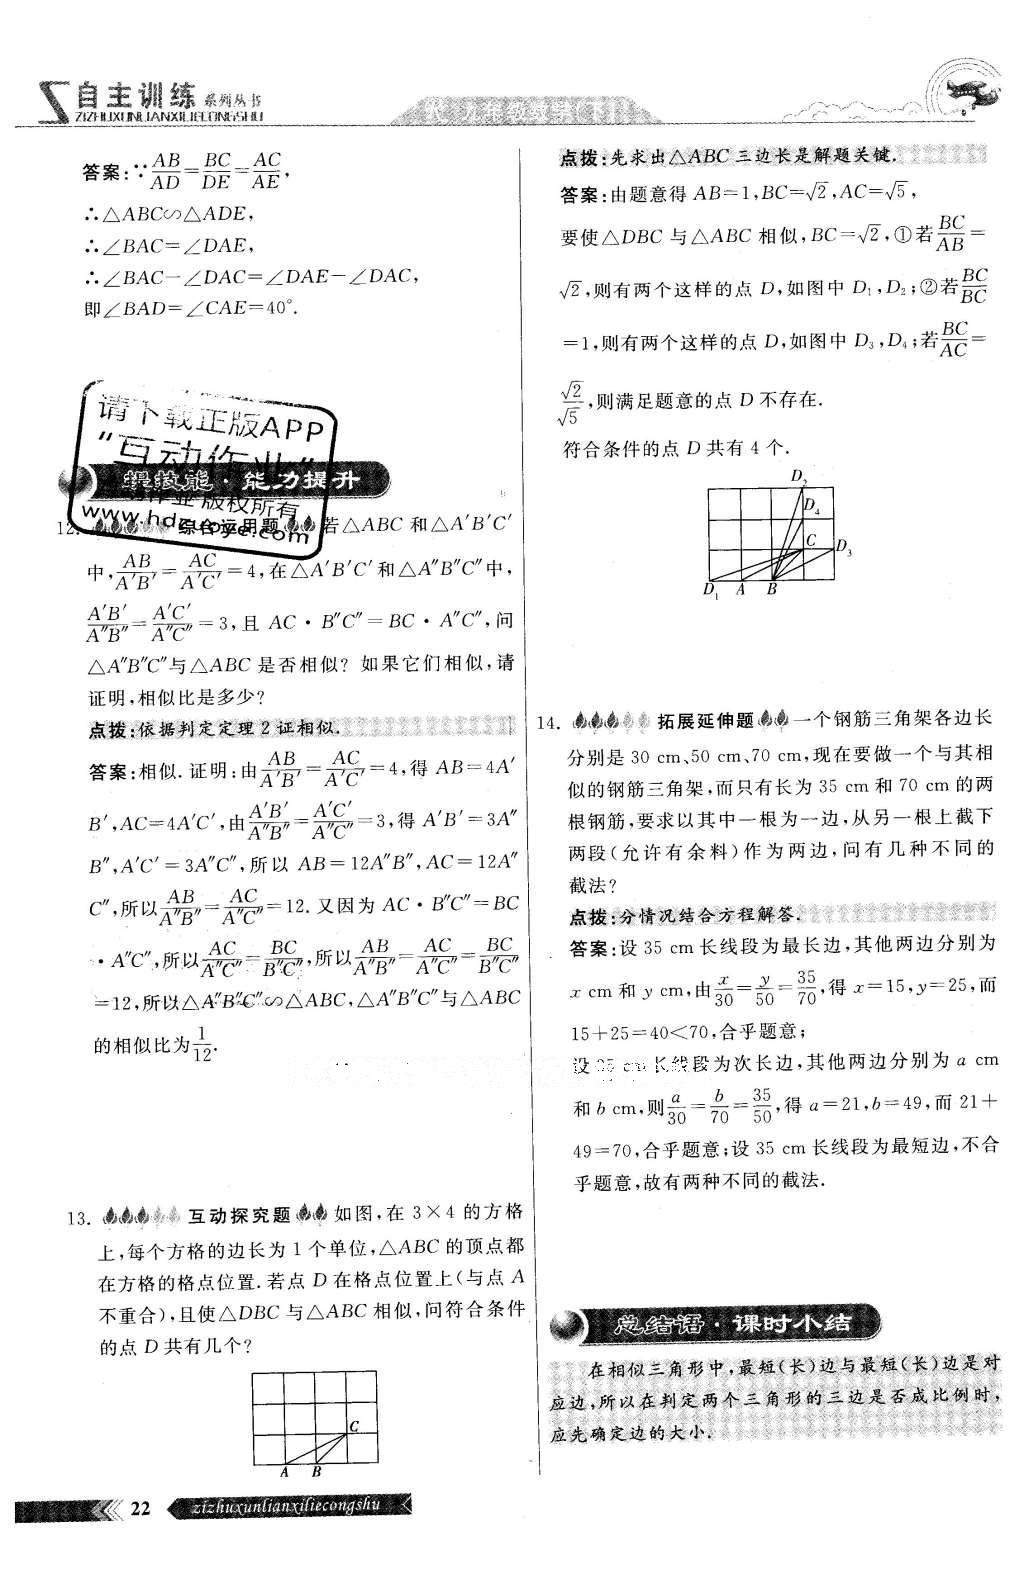 自主训练 系列丛书
ZIZHUXUNLIANXILIECONGSHU
九年级数学(下)
答案:∵AB/AD=BC/DE=AC/AE,
∴△ABC∽△ADE,
∴∠BAC=∠DAE,
∴∠BAC-∠DAC=∠DAE-∠DAC,
即∠BAD=∠CAE=40°.
请下载正版APP
“互动作业”
提技能·能力提升
作业 版权所有
12. 综合运用题 若△ABC 和△A′B′C′
中,AB/A′B′=AC/A′C′=4,在△A′B′C′和△A″B″C″中,
A′B′/A″B″=A′C′/A″C″=3,且 AC·B″C″=BC·A″C″,问
△A″B″C″与△ABC 是否相似? 如果它们相似,请
证明,相似比是多少?
点拨:依据判定定理2证相似.
答案:相似.证明:由AB/A′B′=AC/A′C′=4,得 AB=4A′
B′,AC=4A′C′,由A′B′/A″B″=A′C′/A″C″=3,得 A′B′=3A″
B″,A′C′=3A″C″,所以 AB=12A″B″,AC=12A″
C″,所以AB/A″B″=AC/A″C″=12.又因为 AC·B″C″=BC
·A″C″,所以AC/A″C″=BC/B″C″,所以AB/A″B″=AC/A″C″=BC/B″C″
=12,所以△A″B″C″∽△ABC,△A″B″C″与△ABC
的相似比为1/12.
13. 互动探究题 如图,在 3×4 的方格
上,每个方格的边长为 1 个单位,△ABC 的顶点都
在方格的格点位置.若点 D 在格点位置上(与点 A
不重合),且使△DBC 与△ABC 相似,问符合条件
的点 D 共有几个?
C
A B
点拨:先求出△ABC 三边长是解题关键.
答案:由题意得 AB=1,BC=√2,AC=√5,
要使△DBC 与△ABC 相似,BC=√2,①若BC/AB=
√2,则有两个这样的点 D,如图中 D₁,D₂;②若BC/BC
=1,则有两个这样的点 D,如图中 D₃,D₄;若BC/AC=
√2/√5,则满足题意的点 D 不存在.
符合条件的点 D 共有 4 个.
D₂
D₄
C D₃
D₁ A B
14. 拓展延伸题 一个钢筋三角架各边长
分别是 30 cm、50 cm、70 cm,现在要做一个与其相
似的钢筋三角架,而只有长为 35 cm 和 70 cm 的两
根钢筋,要求以其中一根为一边,从另一根上截下
两段(允许有余料)作为两边,问有几种不同的
截法?
点拨:分情况结合方程解答.
答案:设 35 cm 长线段为最长边,其他两边分别为
x cm 和 y cm,由x/30=y/50=35/70,得 x=15,y=25,而
15+25=40<70,合乎题意;
设 35 cm 长线段为次长边,其他两边分别为 a cm
和 b cm,则a/30=b/70=35/50,得 a=21,b=49,而 21+
49=70,合乎题意;设 35 cm 长线段为最短边,不合
乎题意,故有两种不同的截法.
总结语·课时小结
在相似三角形中,最短(长)边与最短(长)边是对
应边,所以在判定两个三角形的三边是否成比例时,
应先确定边的大小.
22 zizhuxunlianxiliecongshu